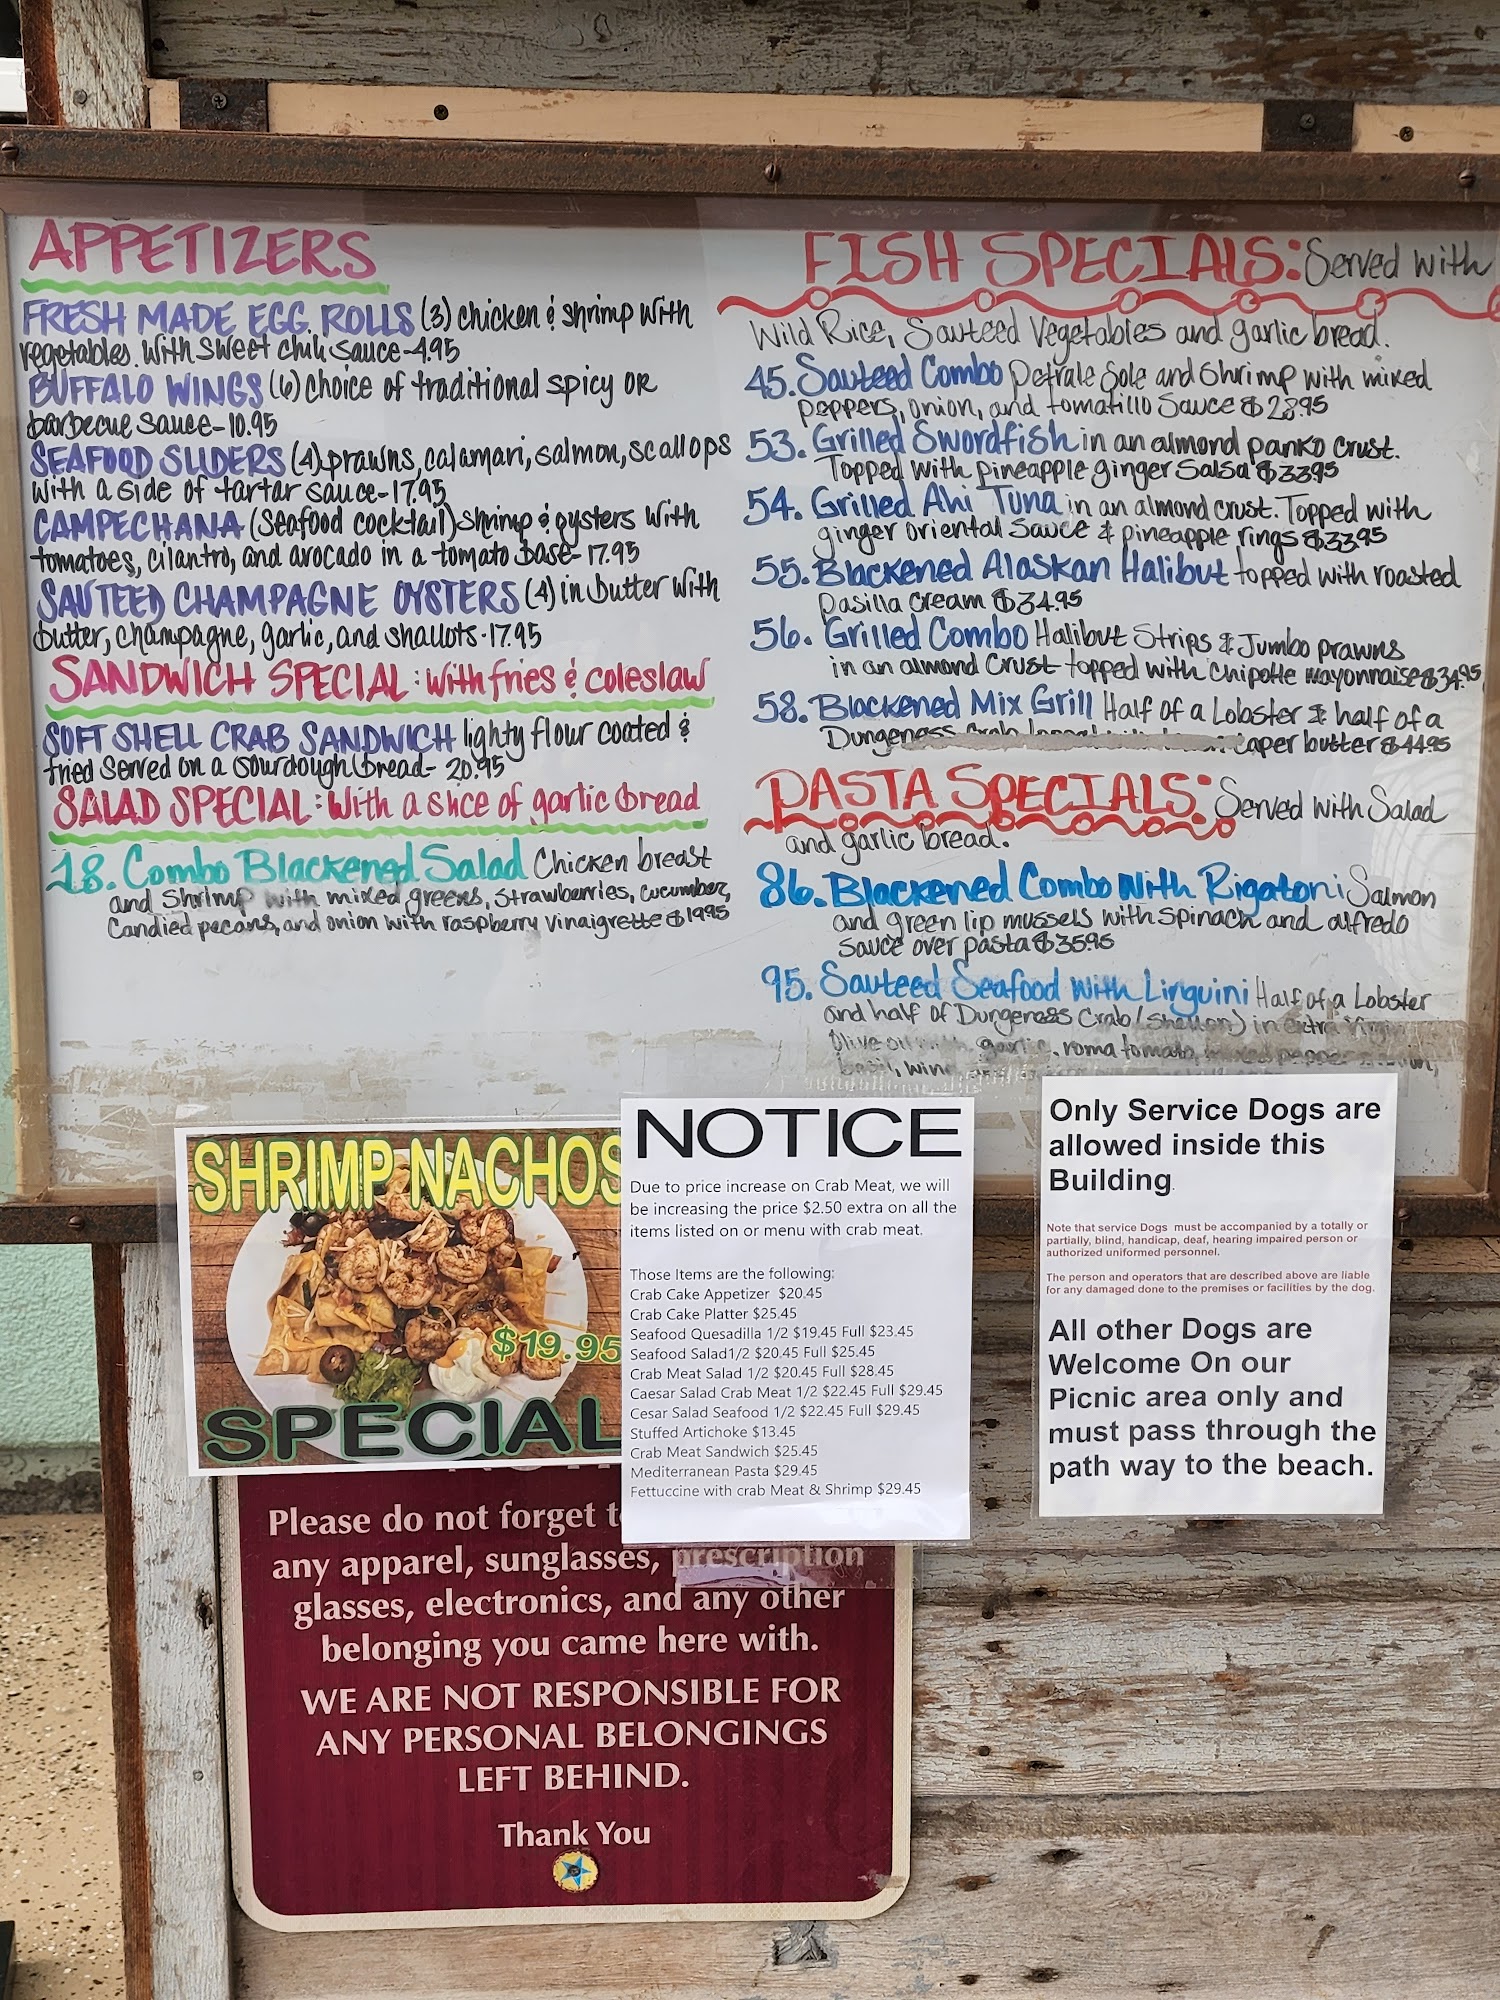 APPETIZERS
FRESH MADE EGG ROLLS (3) chicken & shrimp with
vegetables. With sweet chili sauce-4.95
BUFFALO WINGS (6) choice of traditional spicy OR
barbecue sauce-10.95
SEAFOOD SLIDERS (4) prawns, calamari, salmon, scallops
with a side of tartar sauce-17.95
CAMPECHANA (seafood cocktail) shrimp & oysters with
tomatoes, cilantro, and avocado in a tomato base-17.95
SAUTEED CHAMPAGNE OYSTERS (4) in butter with
butter, champagne, garlic, and shallots-17.95
SANDWICH SPECIAL: with fries & coleslaw
SOFT SHELL CRAB SANDWICH lighty flour coated &
fried Served on a sourdough bread- 20.95
SALAD SPECIAL: With a slice of garlic bread
18. Combo Blackened Salad Chicken breast
and Shrimp with mixed greens, strawberries, cucumber,
Candied pecans, and onion with raspberry Vinaigrette $19.95
FISH SPECIALS: Served with
Wild Rice, Sauteed Vegetables and garlic bread.
45. Sauteed Combo Petrale Sole and Shrimp with mixed
peppers, onion, and tomatillo Sauce $28.95
53. Grilled Swordfish in an almond panko crust.
Topped with pineapple ginger Salsa $33.95
54. Grilled Ahi Tuna in an almond crust. Topped with
ginger oriental Sauce & pineapple rings $33.95
55. Blackened Alaskan Halibut topped with roasted
Pasilla Cream $34.95
56. Grilled Combo Halibut Strips & Jumbo prawns
in an almond Crust topped with Chipotle mayonnaise $34.95
58. Blackened Mix Grill Half of a Lobster & half of a
Dungeness caper butter $44.95
PASTA SPECIALS: Served with Salad
and garlic bread.
86. Blackened Combo With Rigatoni Salmon
and green lip mussels with spinach and alfredo
Sauce over pasta $35.95
95. Sauteed Seafood with Linguini Half of a Lobster
and half of Dungeness Crab (shell on) in extra Virgin
Olive oil with garlic, roma tomato,
basil,
SHRIMP NACHOS
$19.95
SPECIAL
NOTICE
Due to price increase on Crab Meat, we will
be increasing the price $2.50 extra on all the
items listed on or menu with crab meat.
Those Items are the following:
Crab Cake Appetizer $20.45
Crab Cake Platter $25.45
Seafood Quesadilla 1/2 $19.45 Full $23.45
Seafood Salad1/2 $20.45 Full $25.45
Crab Meat Salad 1/2 $20.45 Full $28.45
Caesar Salad Crab Meat 1/2 $22.45 Full $29.45
Cesar Salad Seafood 1/2 $22.45 Full $29.45
Stuffed Artichoke $13.45
Crab Meat Sandwich $25.45
Mediterranean Pasta $29.45
Fettuccine with crab Meat & Shrimp $29.45
Only Service Dogs are
allowed inside this
Building.
Note that service Dogs must be accompanied by a totally or
partially, blind, handicap, deaf, hearing impaired person or
authorized uniformed personnel.
The person and operators that are described above are liable
for any damaged done to the premises or facilities by the dog.
All other Dogs are
Welcome On our
Picnic area only and
must pass through the
path way to the beach.
Please do not forget
any apparel, sunglasses, prescription
glasses, electronics, and any other
belonging you came here with.
WE ARE NOT RESPONSIBLE FOR
ANY PERSONAL BELONGINGS
LEFT BEHIND.
Thank You